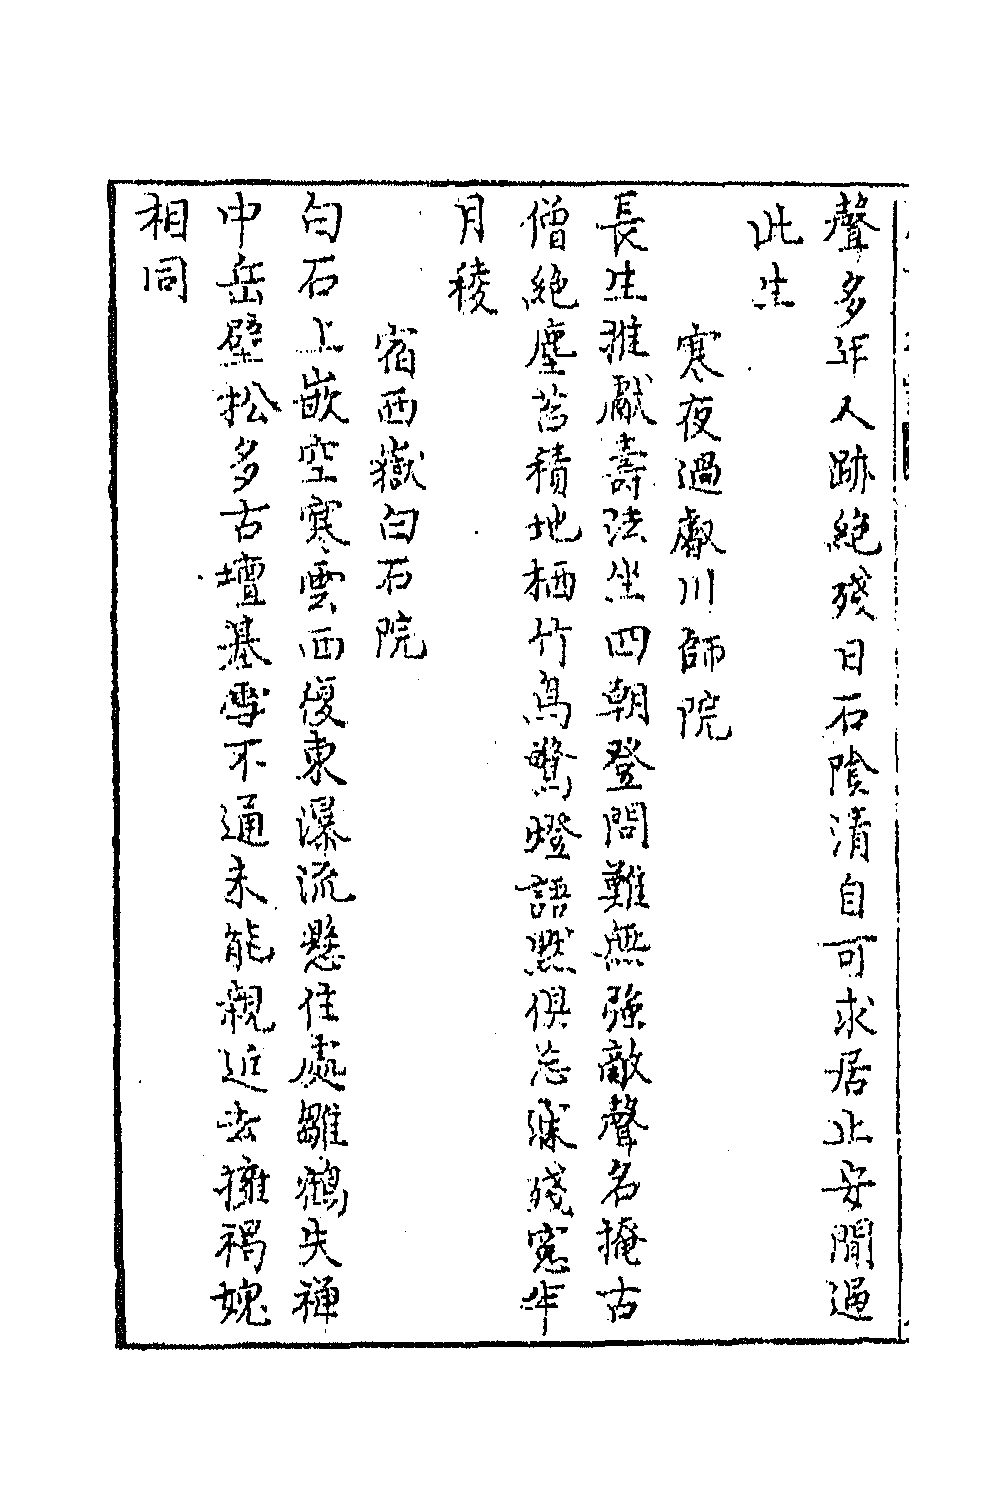 聲多年人跡絶殘日石陰清自可求居止安閒過
此生
寒夜過叡川師院
長生推獻壽法坐四朝登問難無強敵聲名掩古
僧絶塵苔積地栖竹鳥驚燈語默俱忘寐殘窓半
月稜
宿西嶽白石院
白石上嵌空寒雲西復東瀑流懸住處雛鶴失禪
中岳壁松多古壇基雪不通未能親近去擁褐媿
相同